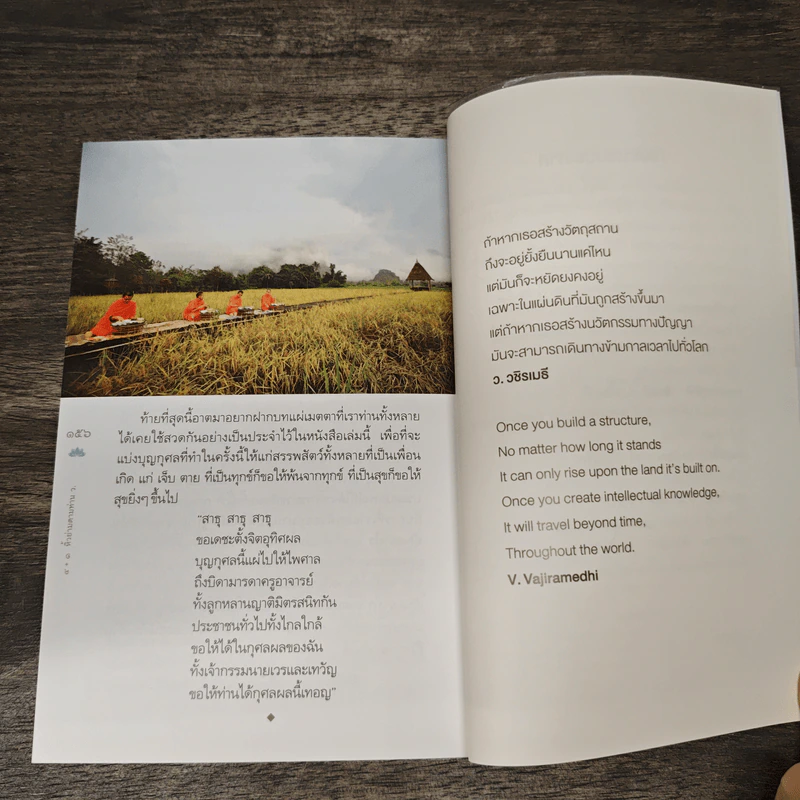 ท้ายที่สุดนี้อาตมาอยากฝากบทแผ่เมตตาที่เราท่านทั้งหลาย
ได้เคยใช้สวดกันอย่างเป็นประจำไว้ในหนังสือเล่มนี้ เพื่อที่จะ
แบ่งบุญกุศลที่ทำในครั้งนี้ให้แก่สรรพสัตว์ทั้งหลายที่เป็นเพื่อน
เกิด แก่ เจ็บ ตาย ที่เป็นทุกข์ก็ขอให้พ้นจากทุกข์ ที่เป็นสุขก็ขอให้
สุขยิ่งๆ ขึ้นไป
“สาธุ สาธุ สาธุ
ขอเดชะตั้งจิตอุทิศผล
บุญกุศลนี้แผ่ไปให้ไพศาล
ถึงบิดามารดาครูอาจารย์
ทั้งลูกหลานญาติมิตรสนิทกัน
ประชาชนทั่วไปทั้งไกลใกล้
ขอให้ได้ในกุศลผลของฉัน
ทั้งเจ้ากรรมนายเวรและเทวัญ
ขอให้ท่านได้กุศลผลนี้เทอญ”
๑๕๖
ถ้าหากเธอสร้างวัตถุสถาน
ถึงจะอยู่ยั้งยืนนานแค่ไหน
แต่มันก็จะหยัดยงคงอยู่
เฉพาะในแผ่นดินที่มันถูกสร้างขึ้นมา
แต่ถ้าหากเธอสร้างนวัตกรรมทางปัญญา
มันจะสามารถเดินทางข้ามกาลเวลาไปทั่วโลก
ว. วชิรเมธี
Once you build a structure,
No matter how long it stands
It can only rise upon the land it's built on.
Once you create intellectual knowledge,
It will travel beyond time,
Throughout the world.
V. Vajiramedhi